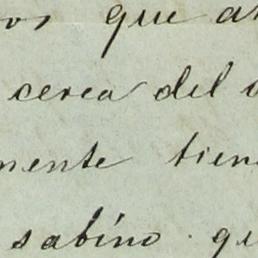 os que a
cerca del
mente tien
sabino. qu